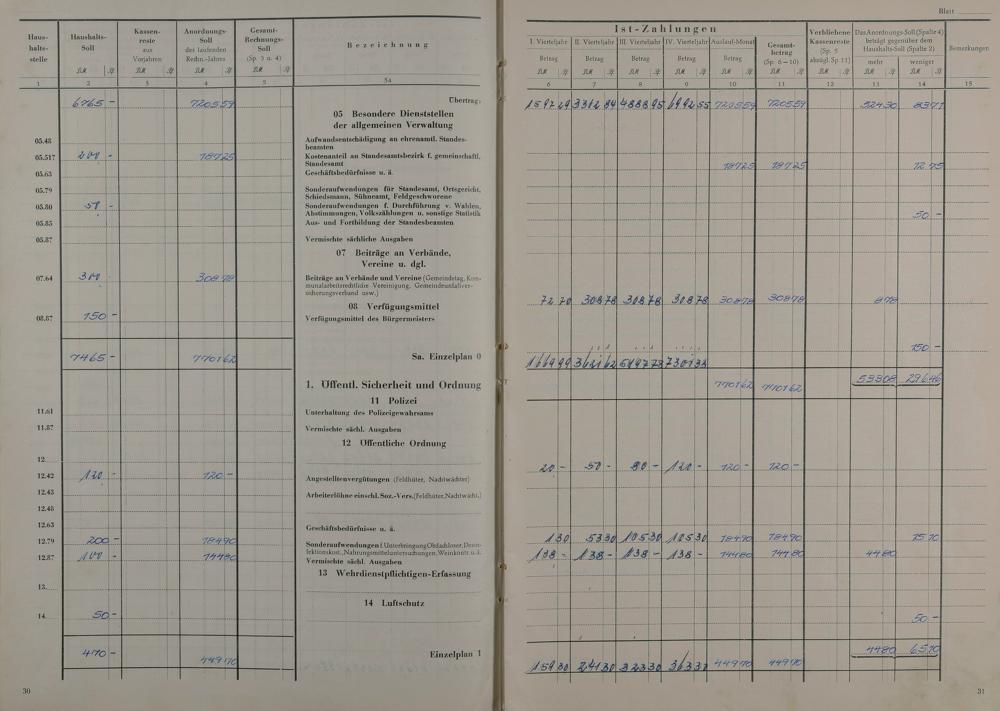 Blatt
Haus-
halts-
stelle
Haushalts-
Soll
Kassen-
reste
aus
Vorjahren
Anordnungs-
Soll
des laufenden
Rechn.-Jahres
Gesamt-
Rechnungs-
Soll
(Sp. 3 u. 4)
Bezeichnung
1 2 3 4 5 5a
6765 - 720559 Übertrag:
05 Besondere Dienststellen
der allgemeinen Verwaltung
05.48 Aufwandsentschädigung an ehrenamtl. Standes-
beamten
05.517 200 - 18725 Kostenanteil an Standesamtsbezirk f. gemeinschaftl.
Standesamt
05.63 Geschäftsbedürfnisse u. ä.
05.79 Sonderaufwendungen für Standesamt, Ortsgericht,
Schiedsmann, Sühneamt, Feldgeschworene
05.80 50 - Sonderaufwendungen f. Durchführung v. Wahlen,
Abstimmungen, Volkszählungen u. sonstige Statistik
05.85 Aus- und Fortbildung der Standesbeamten
05.87 Vermischte sächliche Ausgaben
07 Beiträge an Verbände,
Vereine u. dgl.
07.64 300 30878 Beiträge an Verbände und Vereine (Gemeindetag, Kom-
munalarbeitsrechtliche Vereinigung, Gemeindeunfallver-
sicherungsverband usw.)
08 Verfügungsmittel
08.87 150 - Verfügungsmittel des Bürgermeisters
7465 - 770162 Sa. Einzelplan 0
1. Öffentl. Sicherheit und Ordnung
11 Polizei
11.61 Unterhaltung des Polizeigewahrsams
11.87 Vermischte sächl. Ausgaben
12 Öffentliche Ordnung
12.
12.42 120 - 120 - Angestelltenvergütungen (Feldhüter, Nachtwächter)
12.43 Arbeiterlöhne einschl. Soz.-Vers. (Feldhüter, Nachtwächt.)
12.48
12.63 Geschäftsbedürfnisse u. ä.
12.79 200 - 18490 Sonderaufwendungen f. Unterbringung Obdachloser, Desin-
fektionskost., Nahrungsmitteluntersuchungen, Weinkontr. u. ä.
12.87 100 - 14480 Vermischte sächl. Ausgaben
13 Wehrdienstpflichtigen-Erfassung
13.
14 Luftschutz
14. 50 -
470 - 44970 Einzelplan 1
30
Ist-Zahlungen
I. Vierteljahr II. Vierteljahr III. Vierteljahr IV. Vierteljahr Auslauf-Monat
Betrag Betrag Betrag Betrag Betrag
Gesamt-
betrag
(Sp. 6-10)
Verbliebene
Kassenreste
(Sp. 5
abzügl. Sp. 11)
Das Anordnungs-Soll (Spalte 4)
beträgt gegenüber dem
Haushalts-Soll (Spalte 2)
mehr weniger
Bemerkungen
6 7 8 9 10 11 12 13 14 15
159729 331284 488895 699255 720559 720559 52430 8371
18725 18725 1275
50 -
7270 30878 30878 30878 30878 30878 878
150 -
166999 362162 519773 730133
770162 770162 53308 29646
20 - 50 - 80 - 120 - 120 - 120 -
130 5330 10530 10530 18490 18490 1510
138 - 138 - 138 - 138 - 14480 14480 4480
50 -
4480 6510
15930 24130 32330 36330 44970 44970
31